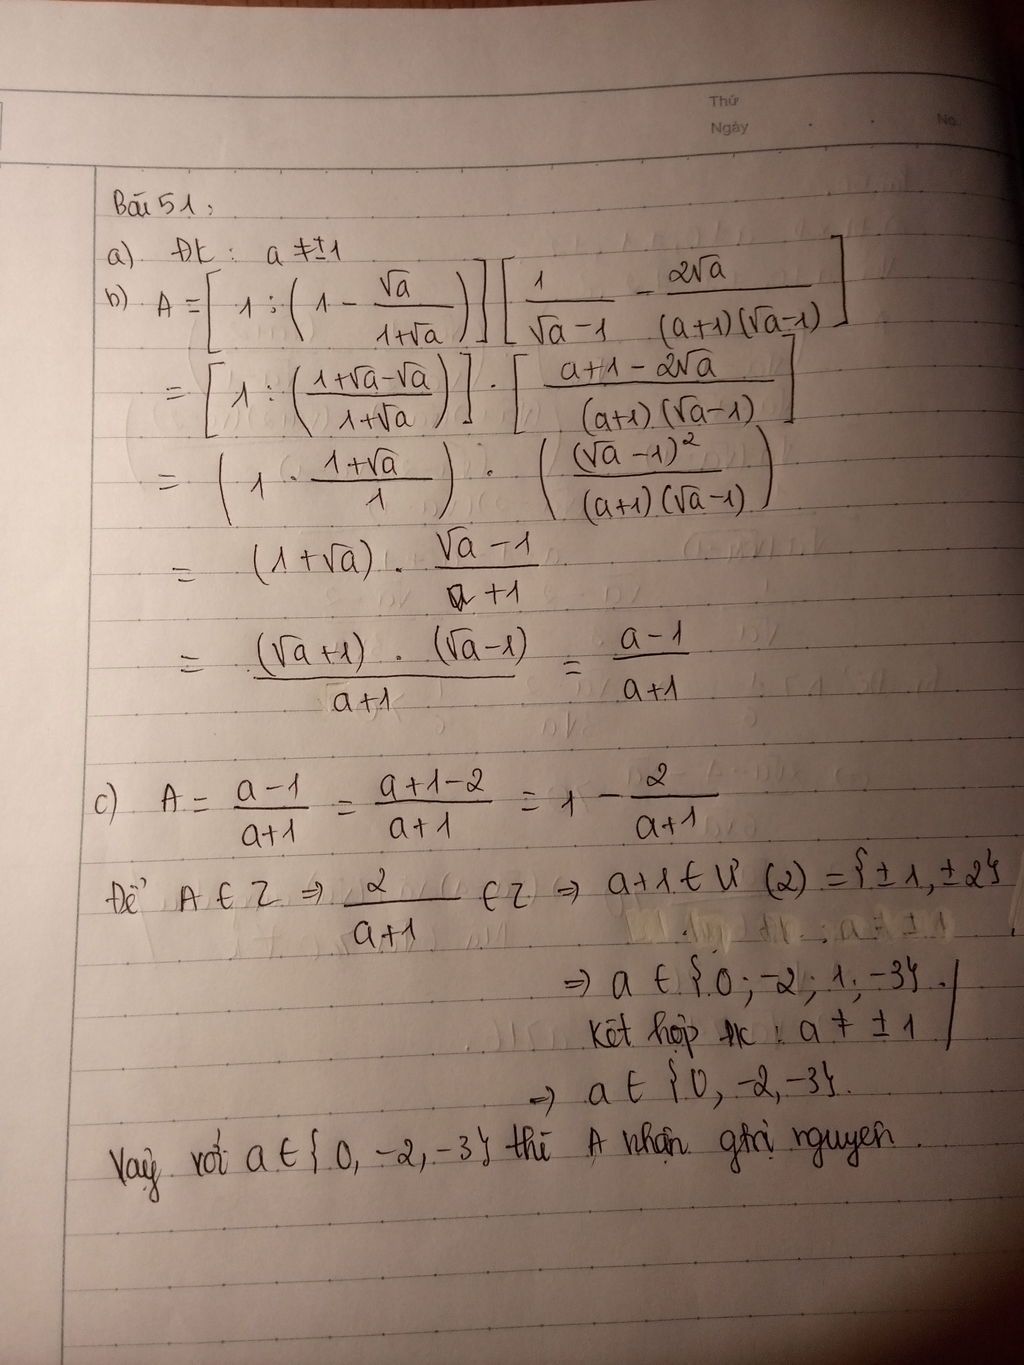 Thứ
Ngày No.
Bài 51:
a) ĐK : a ≠ ±1
b) A = [ 1 : ( 1 - √a / (1+√a) ) ] [ 1 / (√a-1) - 2√a / ((a+1)(√a-1)) ]
= [ 1 : ( (1+√a-√a) / (1+√a) ) ] . [ (a+1-2√a) / ((a+1)(√a-1)) ]
= ( 1 . (1+√a) / 1 ) . ( (√a-1)² / ((a+1)(√a-1)) )
= (1+√a) . (√a-1) / (a+1)
= (√a+1) . (√a-1) / (a+1) = (a-1) / (a+1)
c) A = (a-1) / (a+1) = (a+1-2) / (a+1) = 1 - 2 / (a+1)
Để A ∈ Z ⇒ 2 / (a+1) ∈ Z ⇒ a+1 ∈ Ư (2) = {±1, ±2}
⇒ a ∈ {0; -2; 1; -3}.
Kết hợp ĐK : a ≠ ±1
⇒ a ∈ {0, -2, -3}.
Vậy với a ∈ {0, -2, -3} thì A nhận gtrị nguyên.